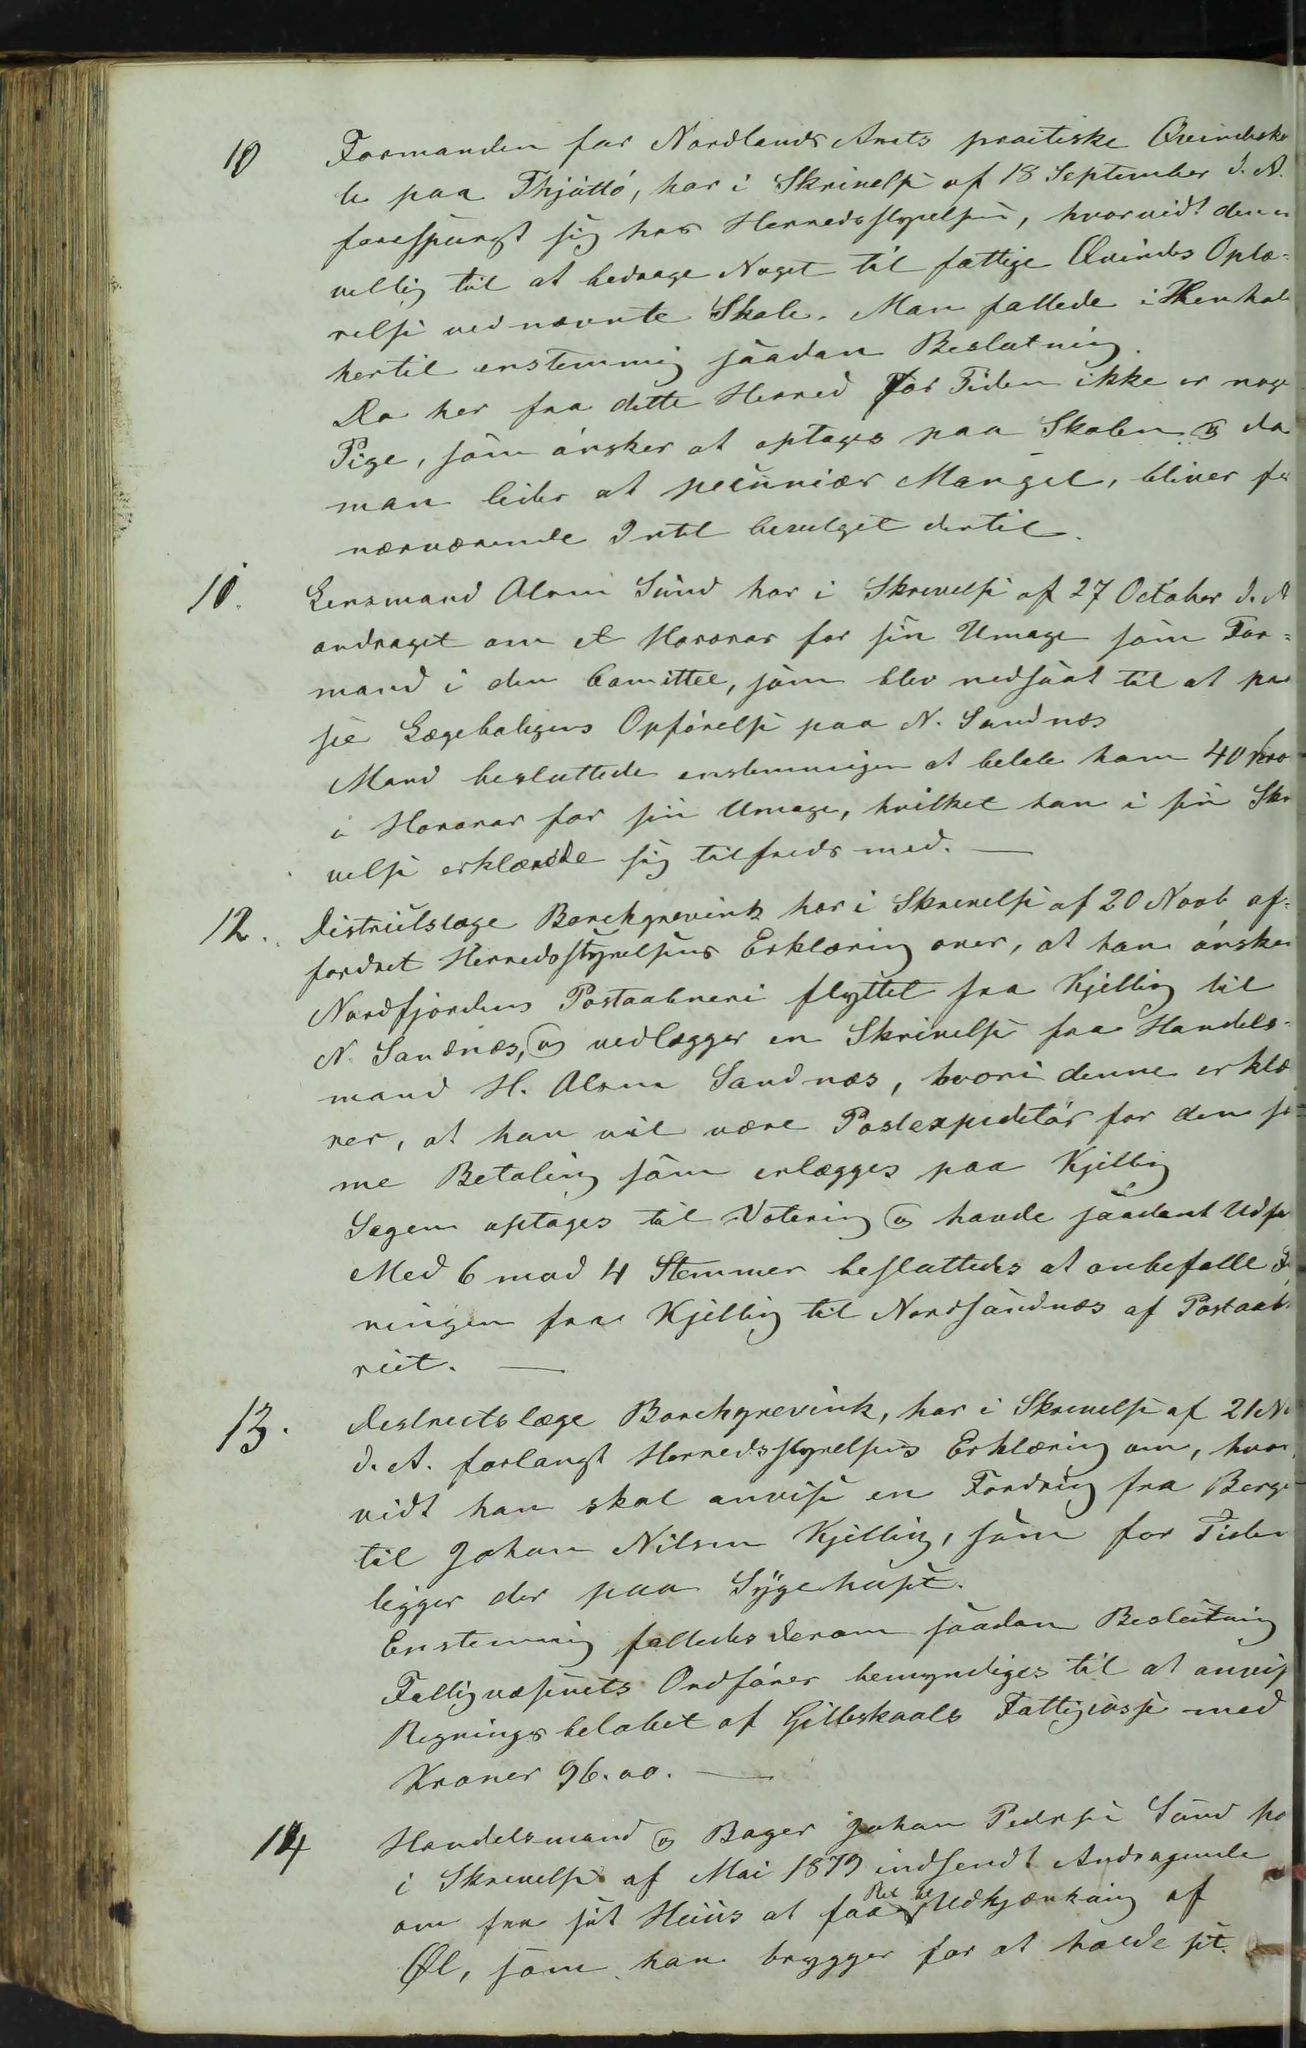 10 Formanden for Nordlands Amts practiske Qvindesko
le paa Thjöttö, har i Skrivelse af 18 September d. A.
forespurgt sig hos Herredsstyrelsen, hvorvidt den er
villig til at bedrage Noget til fattige Qvindes Oplæ-
relse ved nævnte Skole. Man fattede i Henhol
hertil enstemmig saadan Beslutning.
Da her fra dette Herred for Tiden ikke er noge
Pige, som ønsker at optages paa Skolen og da
man lider at pecuniær Mangel, bliver fo
nærværende Intet bevilget dertil.
11. Lensmand Alsen Sund har i Skrivelse af 27 October d. A
andraget om et Honorar for sin Umage som For-
mand i den Comittee, som blev nedsaat til at paa
see Lægeboligens Opførelse paa N. Sandnæs
Mand besluttede enstemmigen at betale ham 40 Kro
i Honorar for sin Umage, hvilket han i sin Skr
velse erklærede sig tilfreds med. —
12. Districtslæge Borchgrevink har i Skrivelse af 20 Novb af-
fordret Herredsstyrelsens Erklæring over, at han ønsker
Nordfjordens Postaabneri flyttet fra Kjelling til
N. Sandnæs, og vedlægger en Skrivelse fra Handels-
mand H. Alsen Sandnæs, hvori denne erklæ
rer, at han vil være Postexpeditör for den sa
me Betaling som erlægges paa Kjelling
Sagen optages til Votering og havde saadant Udfa
Med 6 mod 4 Stemmer besluttedes at anbefalle
ningen fra Kjelling til Nordsandnæs af Postaab
riet. —
13. Destrectslæge Borchgrevink, har i Skrivelse af 21 No
d. A. forlangt Herredsstyrelsens Erklæring om, hvor
vidt han skal anvise en Fordring fra Berge
til Johan Nilsen Kjelling, som for Tiden
ligger der paa Sygehuset.
Enstemmig fattedes derom saadan Beslutning
Fattigvæsenets Ordfører bemyndiges til at anvis
Regningsbeløbet af Gilleskaals Fattigcasse med
Kroner 96.00. —
14 Handelsmand og Bager Johan Pedersen Sund ha
i Skrivelse af Mai 1879 indsendt Andragende
om fra sit Huus at faa Ret til Udskjænkning af
Øl, som han brygger for at holde sit